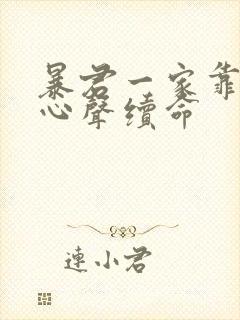 暴君一家靠
心聲續命
連小君